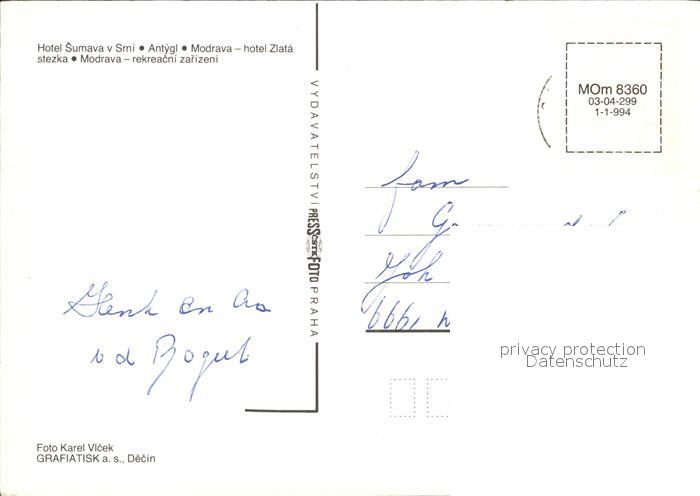 Hotel Šumava v Srní ● Antýgl ● Modrava – hotel Zlatá
stezka ● Modrava – rekreační zařízení
MOm 8360
03-04-299
1-1-994
VYDAVATELSTVÍ PRESSFOTO PRAHA
ČSTK
fam
G
Joh
Henk en
v d
privacy protection
Datenschutz
Foto Karel Vlček
GRAFIATISK a. s., Děčín